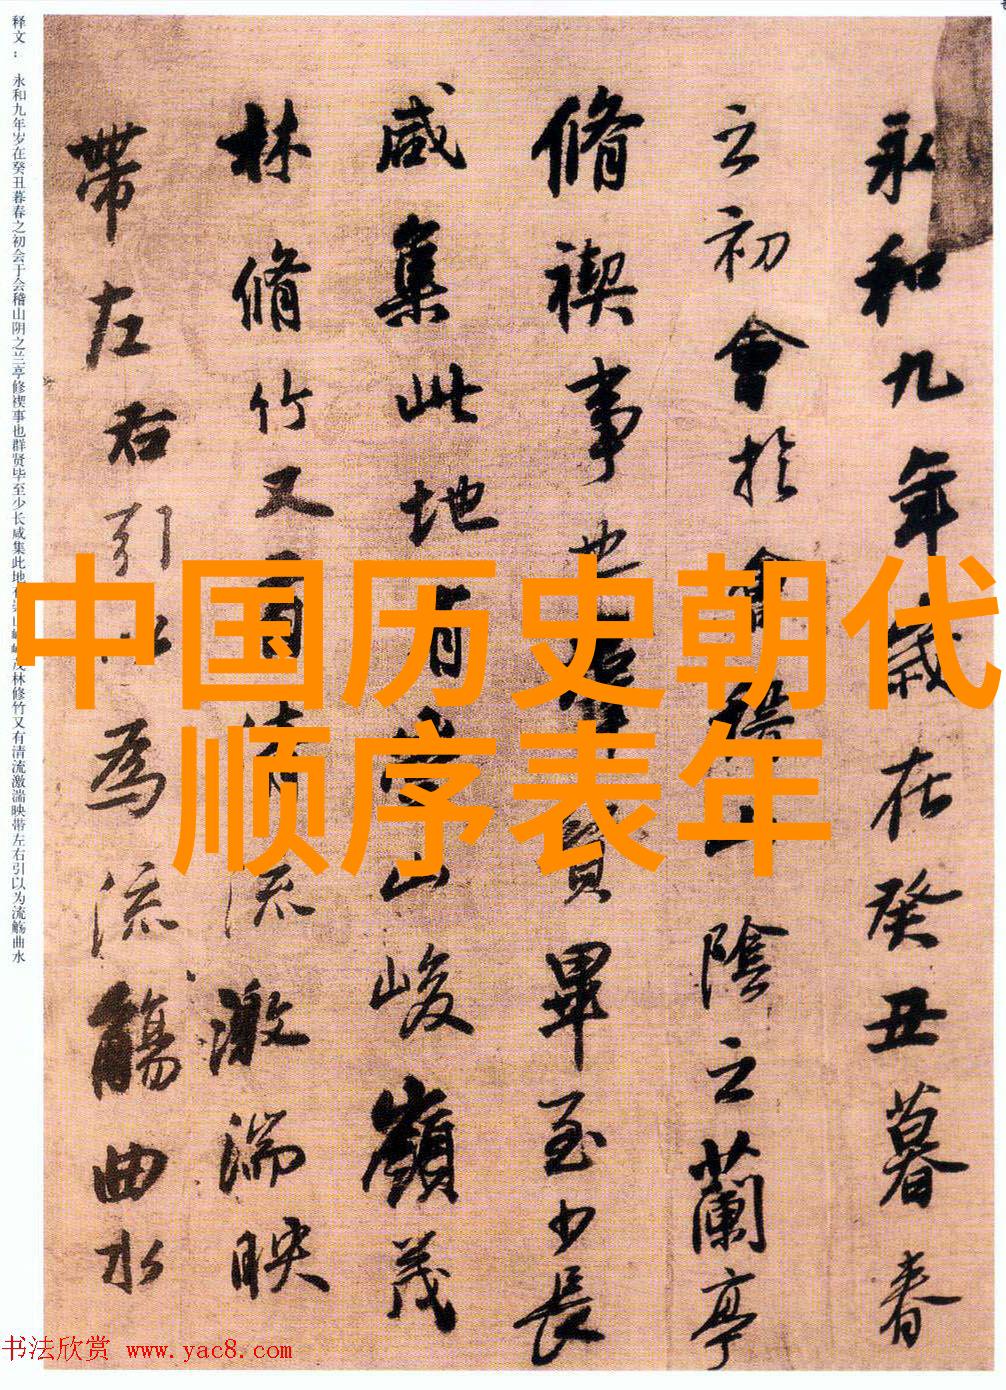 中国历史朝代
顺序表年
永和九年歲在癸丑暮春
之初會於會稽山陰之蘭亭
脩禊事也群賢畢至少長
咸集此地有崇山峻嶺茂
林脩竹又有清流激湍映
帶左右引以為流觴曲水
释文： 永和九年岁在癸丑暮春之初会于会稽山阴之兰亭修禊事也群贤毕至少长咸集此地有崇山峻岭茂林修竹又有清流激湍映带左右引以为流觞曲水
书法欣赏 www.yac8.com